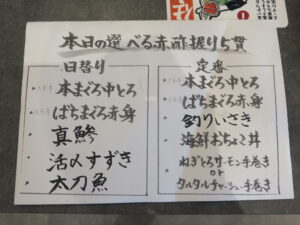 本日の選べる赤酢握り5貫
日替り
本まぐろ中とろ
ばちまぐろ赤身
真鯵
活〆すずき
太刀魚
定番
本まぐろ中とろ
ばちまぐろ赤身
釣りいさき
海鮮おちょこ丼
ねぎとろサーモン手巻き
or
タルタルチャーシュー手巻き